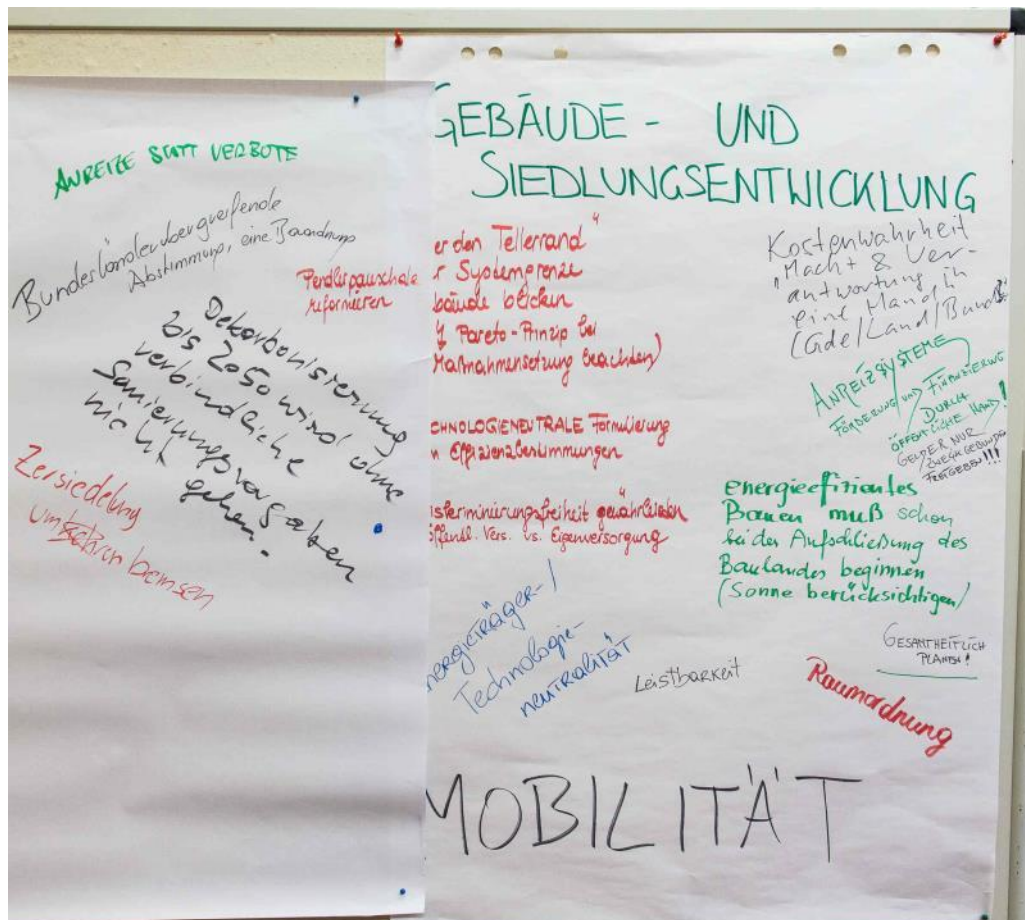 ANREIZE STATT VERBOTE
Bundesländerübergreifende
Abstimmung, eine Bauordnung
Pendlerpauschale
reformieren
Dekarbonisierung
bis 2050 wird ohne
verbindliche
Sanierungsvorgaben
nicht gehen.
Zersiedelung
bremsen
GEBÄUDE - UND
SIEDLUNGSENTWICKLUNG
er den Tellerrand"
r Systemgrenze
bäude blicken
Pareto-Prinzip bei
Maßnahmensetzung beachten)
CHNOLOGIENEUTRALE Formulierung
n Effizienzbestimmungen
skriminierungsfreiheit gewährleisten
öffentl. Vers. vs. Eigenversorgung
nergieträger-/
Technologie-
neutralität
Leistbarkeit
Kostenwahrheit
"Macht & Ver-
antwortung in
eine Hand"
(Gde/Land/Bund)
ANREIZSYSTEME
FÖRDERUNG und FINANZIERUNG
DURCH
ÖFFENTLICHE HAND!
GELDER NUR
ZWECKGEBUNDEN
FREIGEBEN!!!
energieeffizientes
Bauen muß schon
bei der Aufschließung des
Baulandes beginnen
(Sonne berücksichtigen)
GESAMTHEITLICH
PLANEN!
Raumordnung
MOBILITÄT